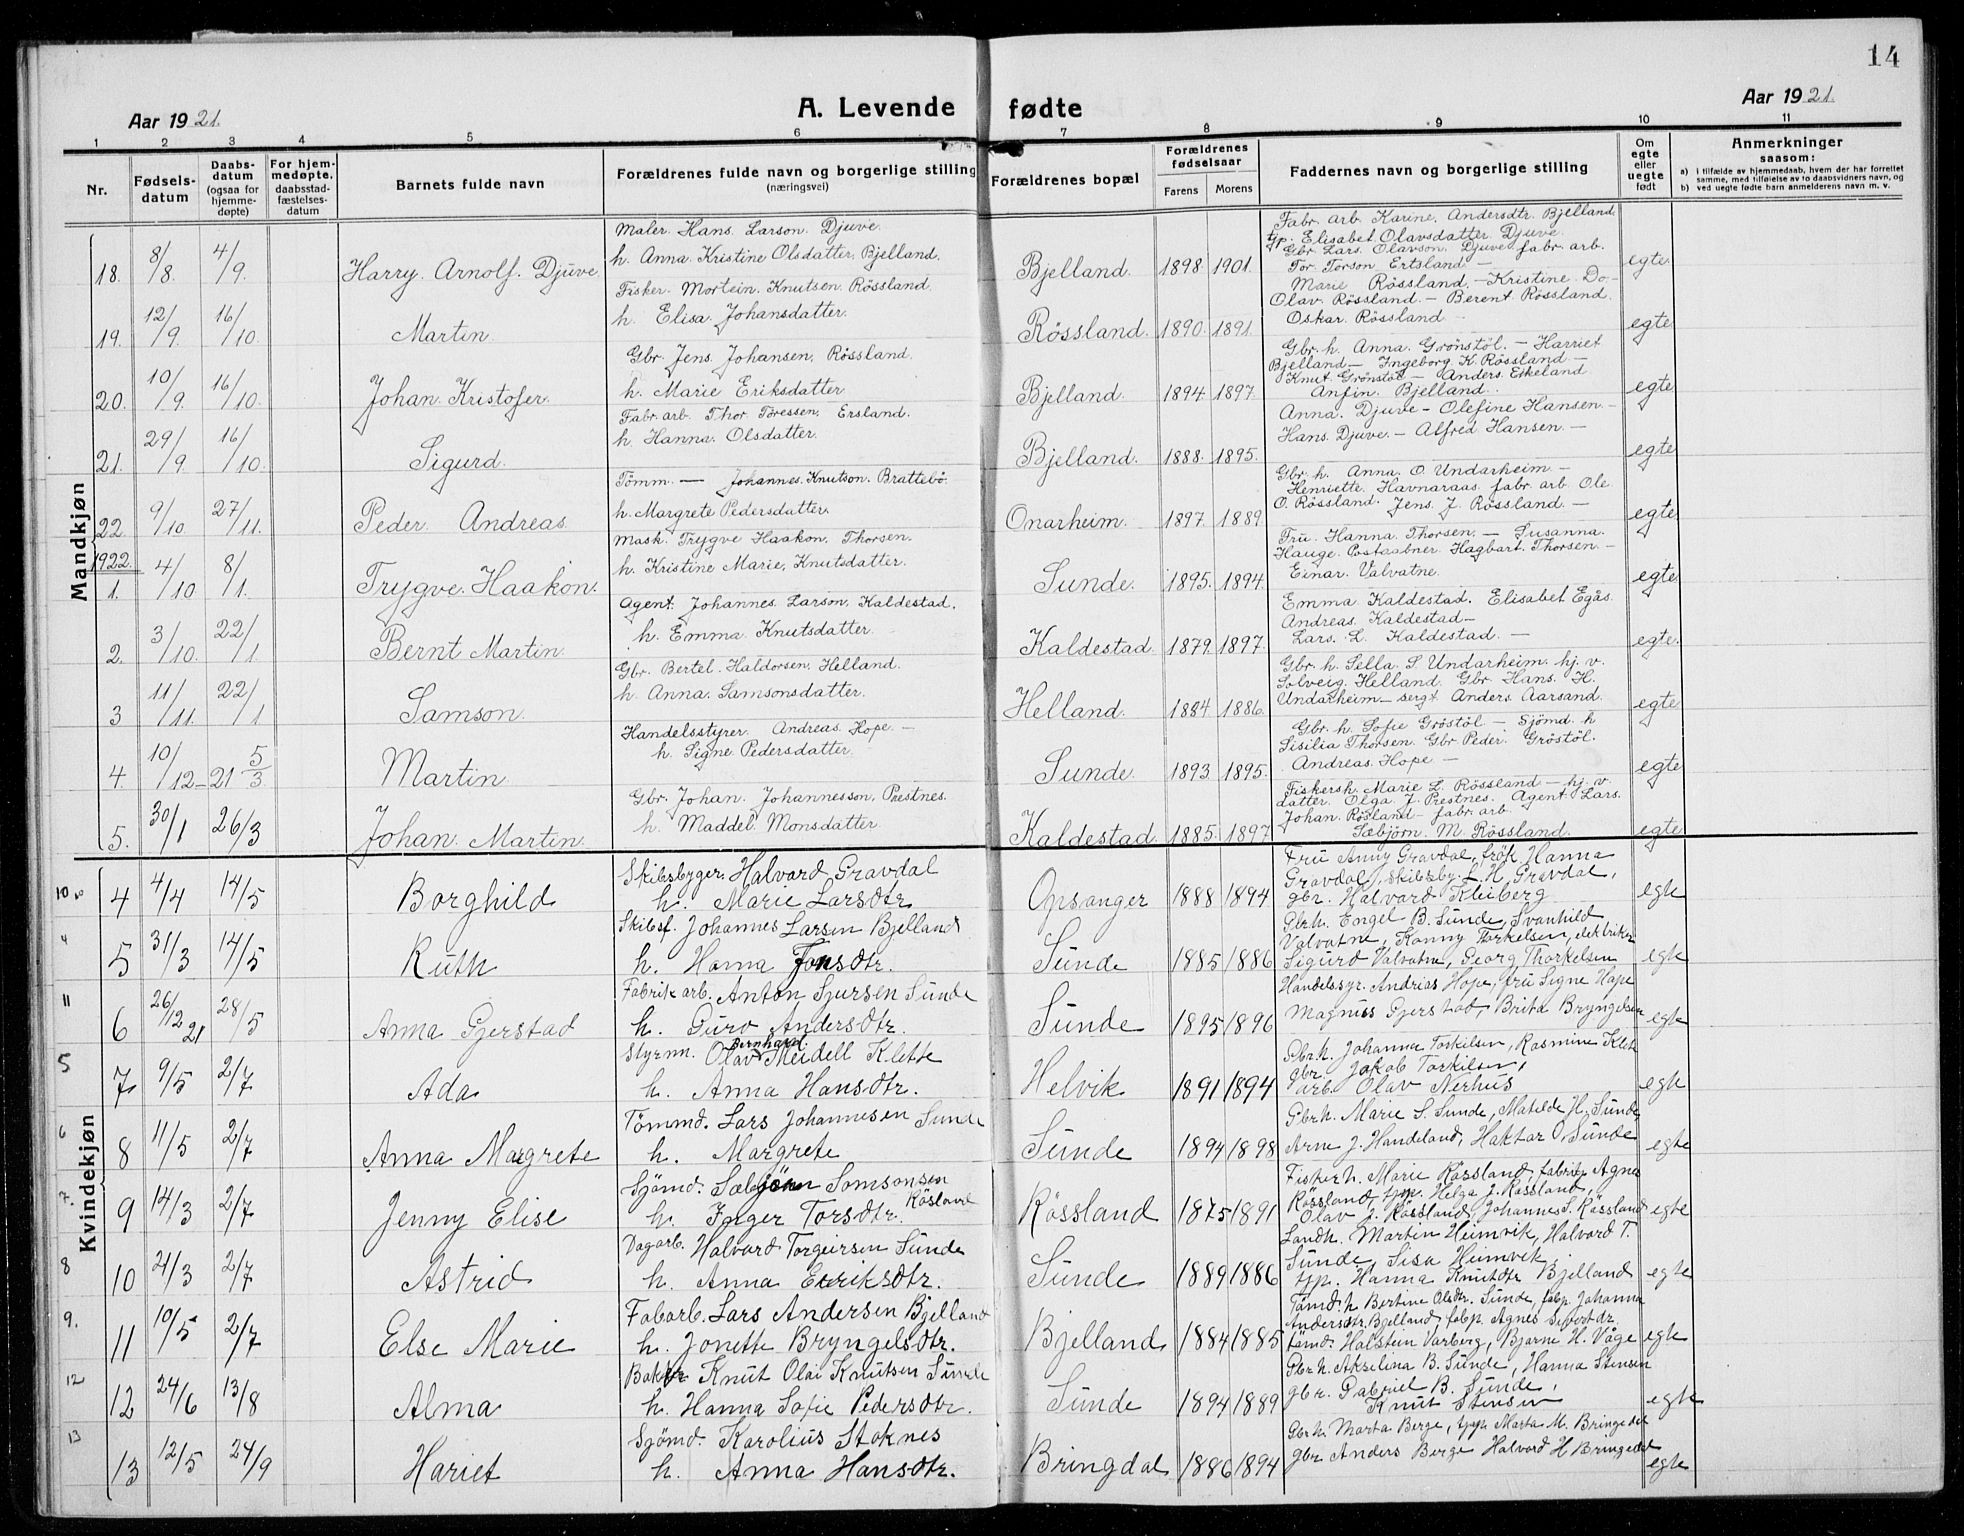 14
Aar 1921.
A. Levende fødte
Aar 1921.
1 2 3 4 5 6 7 8 9 10 11
Nr.
Fødselsdatum
Daabsdatum (ogsaa for hjemmedøpte)
For hjemmedøpte. daabsstadfæstelsesdatum
Barnets fulde navn
Forældrenes fulde navn og borgerlige stilling (næringsvei)
Forældrenes bopæl
Forældrenes fødselsaar
Farens Morens
Faddernes navn og borgerlige stilling
Om egte eller uegte født
Anmerkninger saasom:
a) i tilfælde av hjemmedaab, hvem der har forrettet samme, med tilføielse av to daabsvidners navn, og
b) ved uegte fødte barn anmelderens navn m. v.
Mandkjøn
18. 8/8. 4/9. Harry. Arnolf. Djuve.
Maler. Hans. Larson. Djuve.
h. Anna. Kristine Olsdatter, Bjelland.
Bjelland. 1898. 1901.
Fabr. arb. Karine. Andersdtr. Bjelland.
tjp. Elisabet. Olavsdatter. Djuve.
Gbr. Lars. Olavson. Djuve. fabr. arb.
Tor. Torson Ertsland —
egte.
19. 12/9. 16/10. Martin.
Fisker. Mortein. Knutsen. Røssland.
h. Elisa. Johansdatter.
Røssland. 1890. 1891.
Marie Røssland. — Kristine. Do —
Olav. Røssland. — Berent. Røssland.
Oskar. Røssland —
egte
20. 10/9. 16/10. Johan. Kristofer.
Gbr. Jens. Johansen. Røssland.
h. Marie Eriksdatter.
Bjelland. 1894. 1897.
Gbr. h. Anna. Grønstøl. — Harriet
Bjelland — Ingeborg. K. Røssland —
Knut. Grønstøl — Anders. Eikeland
Anfin. Bjelland.
egte
21. 29/9. 16/10. Sigurd.
Fabr. arb. Thor. Toressen. Ersland.
h. Hanna. Olsdatter.
Bjelland. 1888. 1895.
Anna. Djuve — Olefine Hansen. —
Hans. Djuve. — Alfred Hansen. —
egte
22. 9/10. 27/11. Peder. Andreas.
Tömm. — Johannes. Knutson. Brattebö.
h. Margrete Pedersdatter.
Onarheim. 1897. 1889.
Gbr. h. Anna. O. Undarheim. —
Henriette. Havnaraas. fabr. arb. Ole.
O. Røssland. Jens. J. Røssland. —
egte.
1922.
1. 4/10 8/1. Trygve. Haakon.
Mask. Trygve Haakon, Thorsen.
h. Kristine Marie, Knutsdatter.
Sunde. 1895. 1894.
Fru. Hanna. Thorsen. — Susanna.
Hauge. Postaabner. Hagbart. Thorsen. —
Einar. Valvatne.
egte
2. 3/10. 22/1. Bernt Martin.
Agent. Johannes. Larson. Kaldestad.
h. Emma. Knutsdatter.
Kaldestad. 1879. 1897.
Emma. Kaldestad. Elisabet. Egås.
Andreas. Kaldestad —
Lars. L. Kaldestad. —
egte.
3 11/11. 22/1 Samson.
Gbr. Bertel. Haldorsen. Helland.
h. Anna. Samsonsdatter.
Helland. 1884. 1886.
Gbr. h. Sella. S. Undarheim. hj. v.
Solveig. Helland. Gbr. Hans. H.
Undarheim — sergt. Anders. Aarsand.
egte
4. 10/12-21 5/3 Martin.
Handelsstyrer. Andreas. Hope. —
h. Signe. Pedersdatter.
Sunde. 1893. 1895.
Gbr. h. Sofie Gröstöl. — Sjömd. h
Sisilia Thorsen. Gbr. Peder. Gröstöl.
Andreas. Hope —
egte
5. 30/1 26/3 Johan. Martin.
Gbr. Johan. Johannesson. Prestnes.
h. Maddel. Monsdatter.
Kaldestad. 1885. 1897.
Fiskersh. Marie L. Røssland — hj. v.
datter. Olga. J. Prestnes. Agent. Lars.
Johan. Røsland — fabr. arb.
Sæbjörn. M. Røssland.
egte
Kvindekjøn
10. 4 4/4 14/5 Borghild
Skibsbygger. Halvard Gravdal
h. Marie Larsdtr.
Opsanger 1888 1894
Fru Anny Gravdal, frök. Hanna
Gravdal, skibsby. L. H. Gravdal,
gbr. Halvard Kleiberg.
egte
4 5 31/3 14/5 Ruth
Skibsf. Johannes Larsen Bjelland
h. Hanna Jonsdtr.
Sunde 1885 1886
Gbrh. Engel B. Sunde, Svanhild
Valvatne, Konny Torkelsen,
Sigurd Valvatne, Georg Thorkelsen
egte
11 6 26/12 21 28/5 Anna Gjerstad
Fabrik arb. Anton Sjursen Sunde
h. Guro Andersdtr.
Sunde 1895 1896
Handelssyr. Andrias Hope, fru Signe Hope
Magnus Gjerstad, Brita Bryngelsen
egte
5 7 9/5 2/7 Ada
Styrmn. Olav Bernhard. Meidell Klette
h. Anna Hansdtr.
Helvik 1891 1894
Gbrh. Johanna Torkilsen, Rasmine Klette
gbr. Jakob Torkilsen,
arb. Olav Nerhus
egte
6 8 11/5 2/7 Anna Margrete
Tömmd. Lars Johannesen Sunde
h. Margrete
Sunde 1894 1898
Gbrh. Marie S. Sunde, Matilde H. Sunde,
Arne J. Handeland, Haktor O. Sunde
egte
7. 9 14/3 2/7 Jenny Elise
Sjömd. Sæbjörn Samsonsen Røsland
h. Inger Torsdtr.
Røssland 1875 1891
Fisker h. Marie Røssland, fabrikp. Agnes
Røssland, tjp. Helga J. Røssland,
Olav J. Røssland, Johannes S. Røssland
egte
8 10 21/3 2/7 Astrid
Dagarb. Halvard Torgeirsen Sunde
h. Anna Eriksdtr.
Sunde 1889 1886
Landh. Martin Heimvik, Halvard T.
Sunde, Lisa Heimvik,
tjp. Hanna Knutdtr Bjelland
egte
9. 11 10/5 2/7 Else Marie
Fabarb. Lars Andersen Bjelland
h. Jonette Bryngelsdtr.
Bjelland 1884 1885
Tömd. h Bertine Olsdtr. Sunde, fabp. Johanna
Andersdtr. Bjelland, fabp. Agnes Sivertdr,
tömd. Halstein Varberg, Bjarne H. Våge
egte
12 12 24/6 13/8 Alma
Baker Knut Olai Knutsen Sunde
h. Hanna Sofie Pedersdtr.
Sunde 1894 1889
Gbrh. Akselina B. Sunde, Hanna Stensen
gbr. Gabriel B. Sunde,
Knut Stensen
egte
13 13 12/5 24/9 Hariet
Sjömd. Karolius Stoknes
h. Anna Hansdtr.
Bringdal 1886 1894
Gbrh. Marta Berge, tjp. Marta M. Bringedal
gbr. Anders Berge Halvord H Bringedal
egte